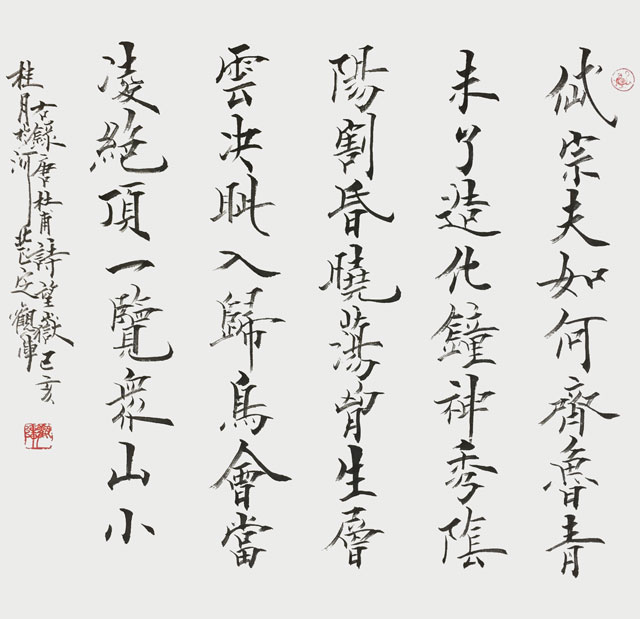 岱宗夫如何齊魯青
未了造化鐘神秀陰
陽割昏曉蕩胷生層
雲决眦入歸鳥會當
凌絕頂一覽衆山小
右錄唐杜甫詩望嶽己亥
桂月於河